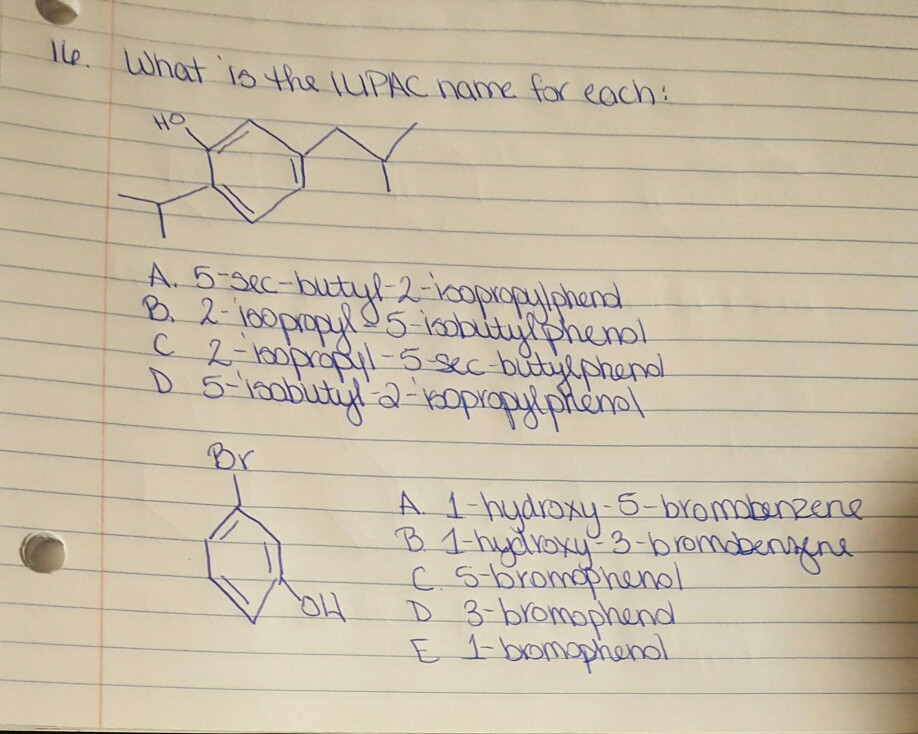 16. What is the IUPAC name for each:
HO
A. 5-sec-butyl-2-isopropylphenol
B. 2-isopropyl-5-isobutylphenol
C 2-isopropyl-5-sec-butylphenol
D 5-isobutyl-2-isopropylphenol
Br
A. 1-hydroxy-5-bromobenzene
B. 1-hydroxy-3-bromobenzene
C. 5-bromophenol
OH D 3-bromophenol
E 1-bromophenol